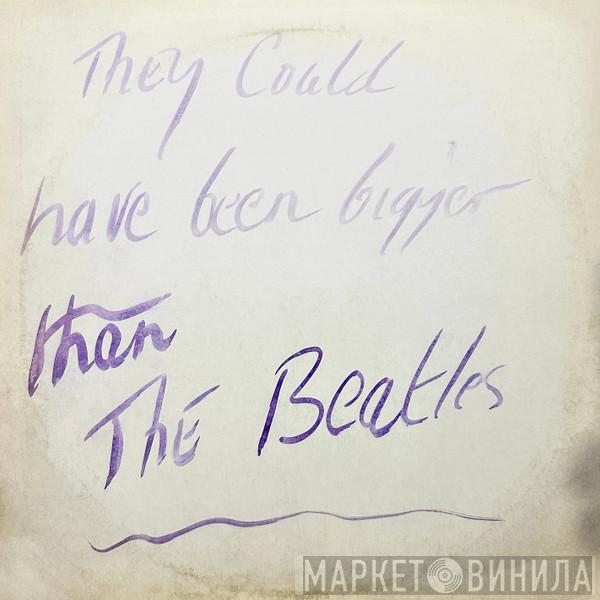 They Could
have been bigger
than
The Beatles
МАРКЕТ ВИНИЛА